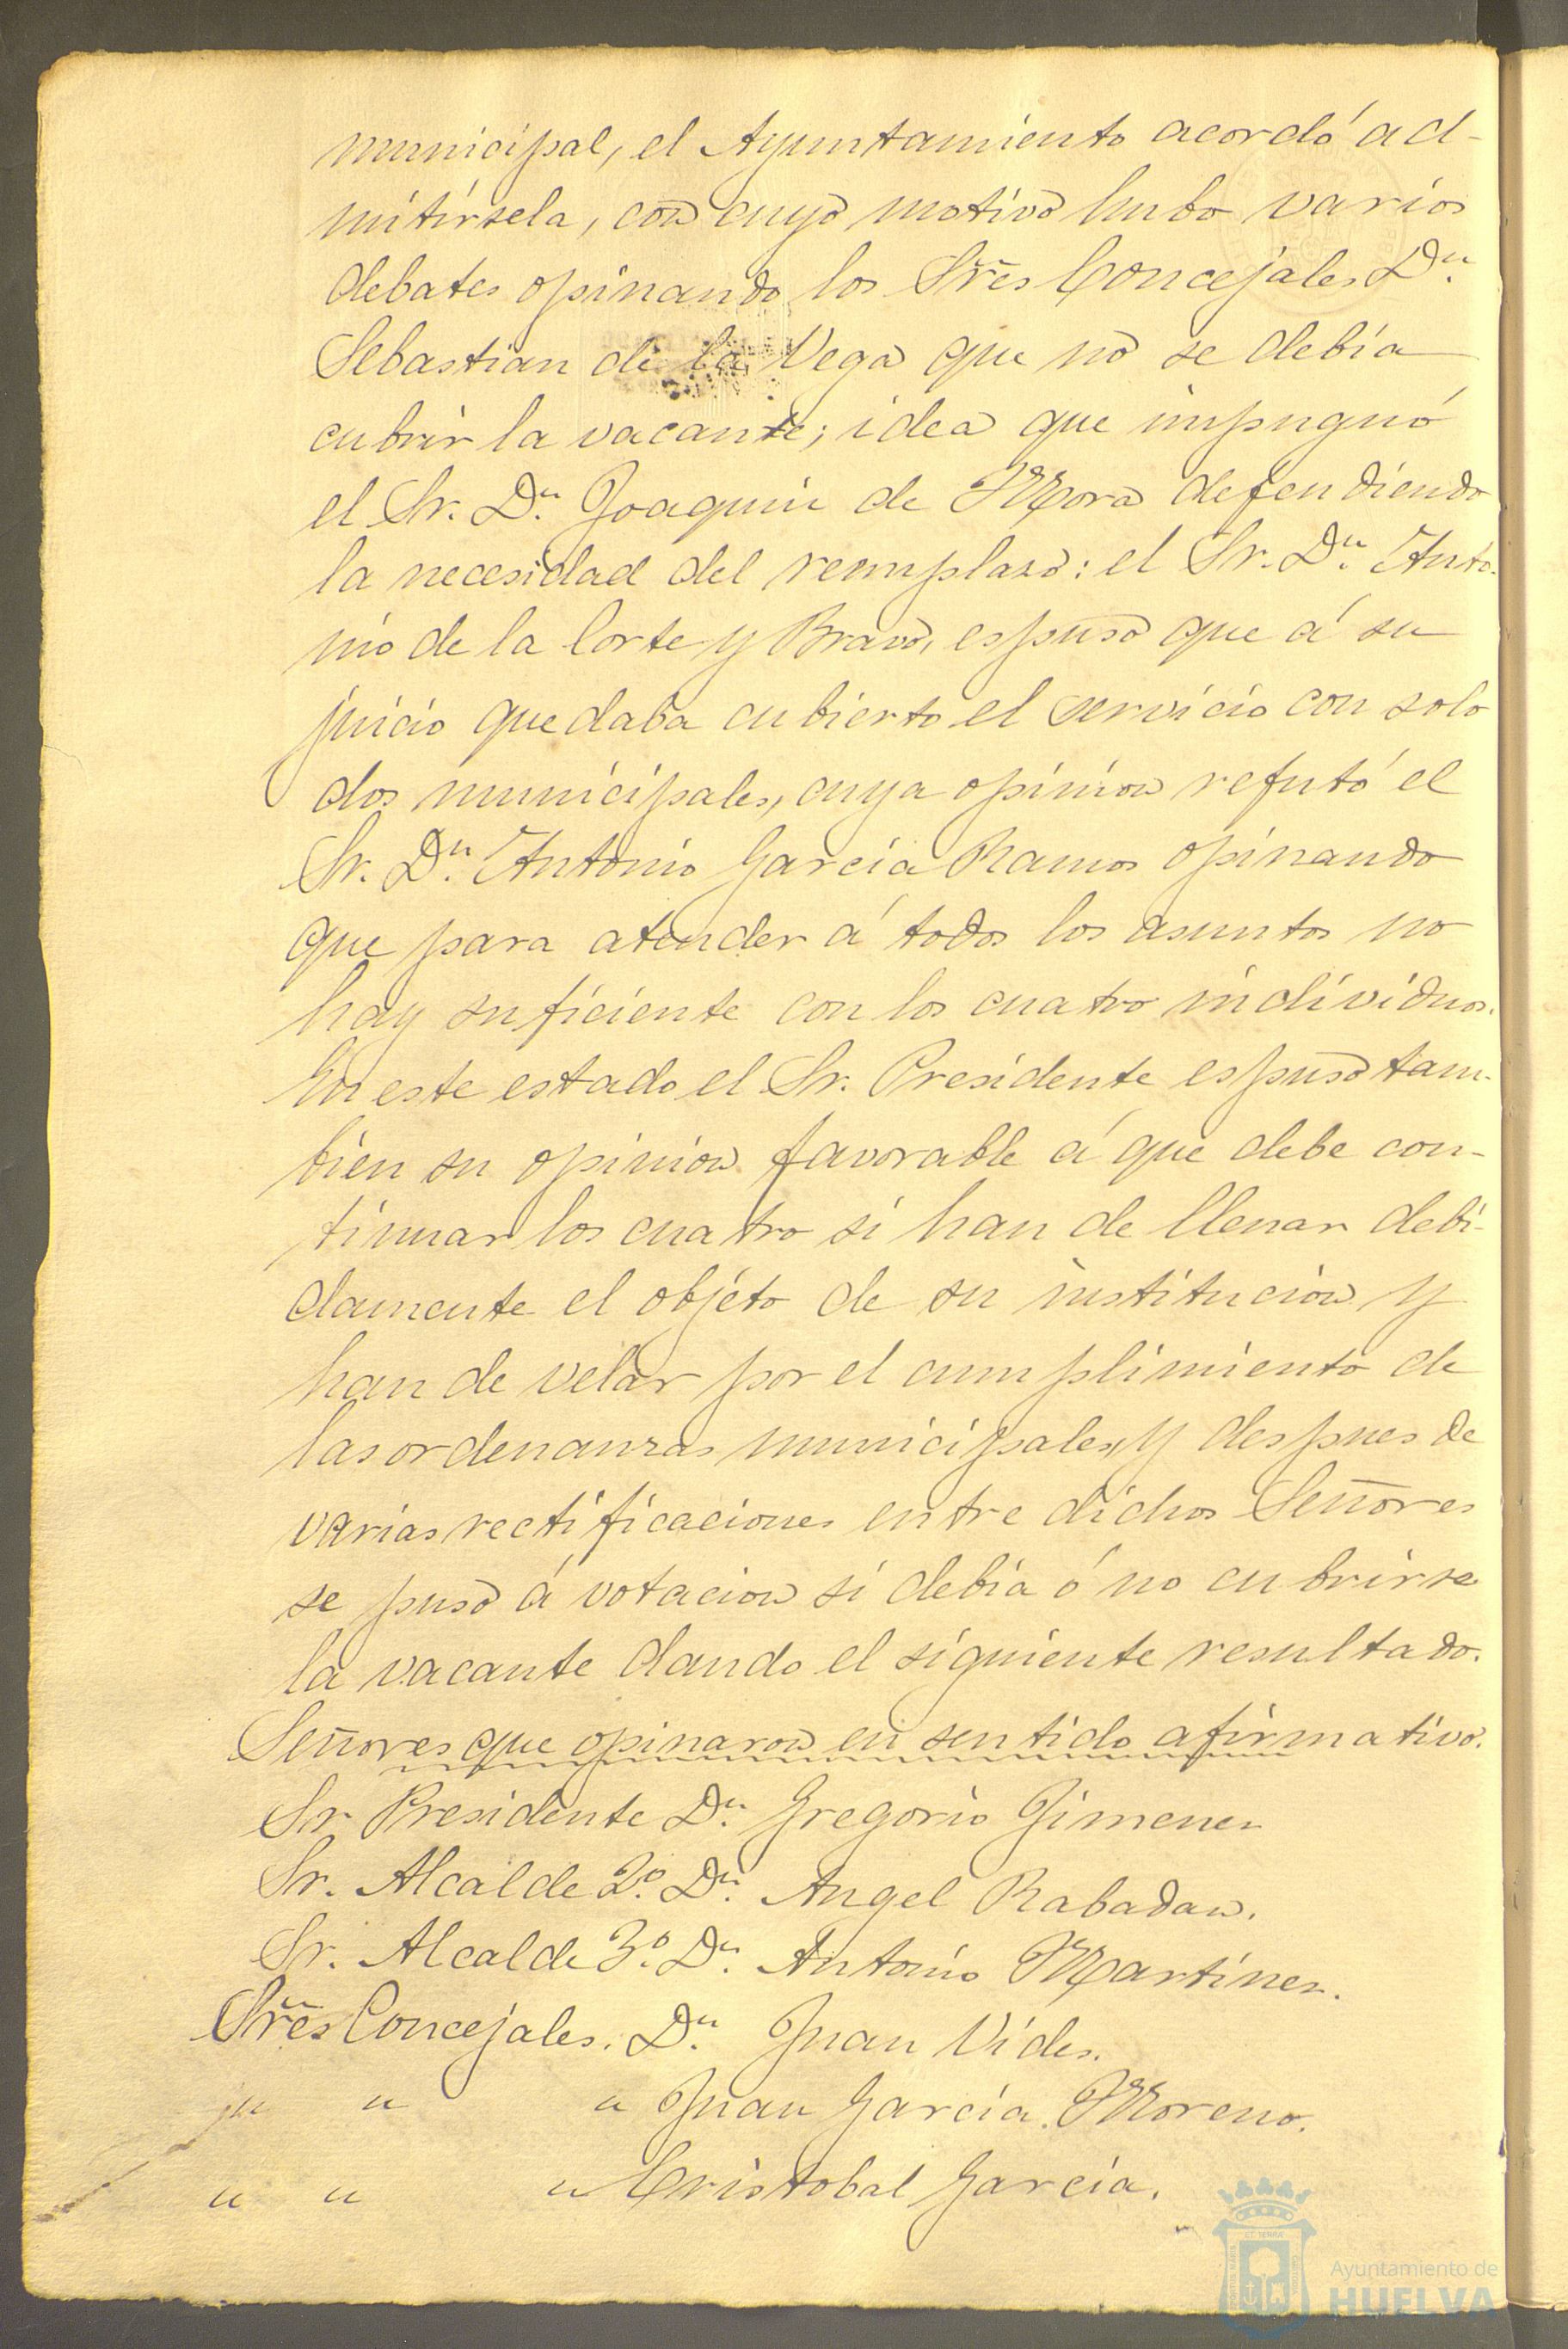 municipal, el Ayuntamiento acordó ad-
mitirsela, con cuyo motivo hubo varios
debates opinando los Sres Concejales Dn.
Sebastian de la Vega que no se debia
cubrir la vacante; idea que impugnó
el Sr. Dn. Joaquin de Mora defendiendo
la necesidad del remplazo: el Sr. Dn. Anto-
nio de la Corte y Bravo, espuso que á su
juicio quedaba cubierto el servicio con solo
dos municipales, cuya opinion refutó el
Sr. Dn. Antonio Garcia Ramos opinando
que para atender á todos los asuntos no
hay suficiente con los cuatro individuos.
En este estado el Sr. Presidente espuso tam-
bien su opinion favorable á que debe con-
tinuar los cuatro si han de llenar debi-
damente el objeto de su institucion y
han de velar por el cumplimiento de
las ordenanzas municipales, y despues de
varias rectificaciones entre dichos Señores
se puso á votacion si debia ó no cubrirse
la vacante dando el siguiente resultado.
Señores que opinaron en sentido afirmativo.
Sr Presidente Dn. Gregorio Jimenez
Sr. Alcalde 2º. Dn. Angel Rabadan.
Sr. Alcalde 3º. Dn. Antonio Martinez.
Sres Concejales. Dn. Juan Vides.
" " " Juan Garcia Moreno.
" " " Cristobal Garcia.
Ayuntamiento de
HUELVA